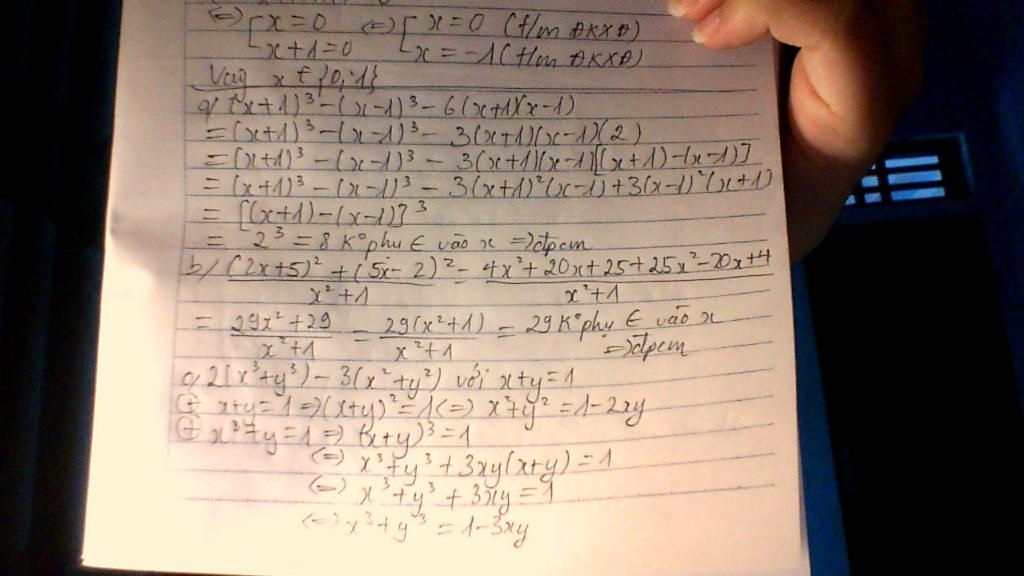 (=) [x=0 (=) [x=0 (t/m ĐKXĐ)
x+1=0 x=-1 (t/m ĐKXĐ)
Vậy x ∈ {0;-1}
a/ (x+1)³-(x-1)³-6(x+1)(x-1)
=(x+1)³-(x-1)³-3(x+1)(x-1)(2)
=(x+1)³-(x-1)³-3(x+1)(x-1)[(x+1)-(x-1)]
=(x+1)³-(x-1)³-3(x+1)²(x-1)+3(x-1)²(x+1)
=[(x+1)-(x-1)]³
= 2³=8 K° phụ ∈ vào x =>đpcm
b/ (2x+5)²+(5x-2)² = 4x²+20x+25+25x²-20x+4
x²+1 x²+1
= 29x²+29 = 29(x²+1) = 29 K° phụ ∈ vào x
x²+1 x²+1 =>đpcm
c/ 2(x³+y³)-3(x²+y²) với x+y=1
(+) x+y=1=>(x+y)²=1(=) x²+y²=1-2xy
(+) x+y=1=>(x+y)³=1
(=) x³+y³+3xy(x+y)=1
(=) x³+y³+3xy=1
(=) x³+y³=1-3xy